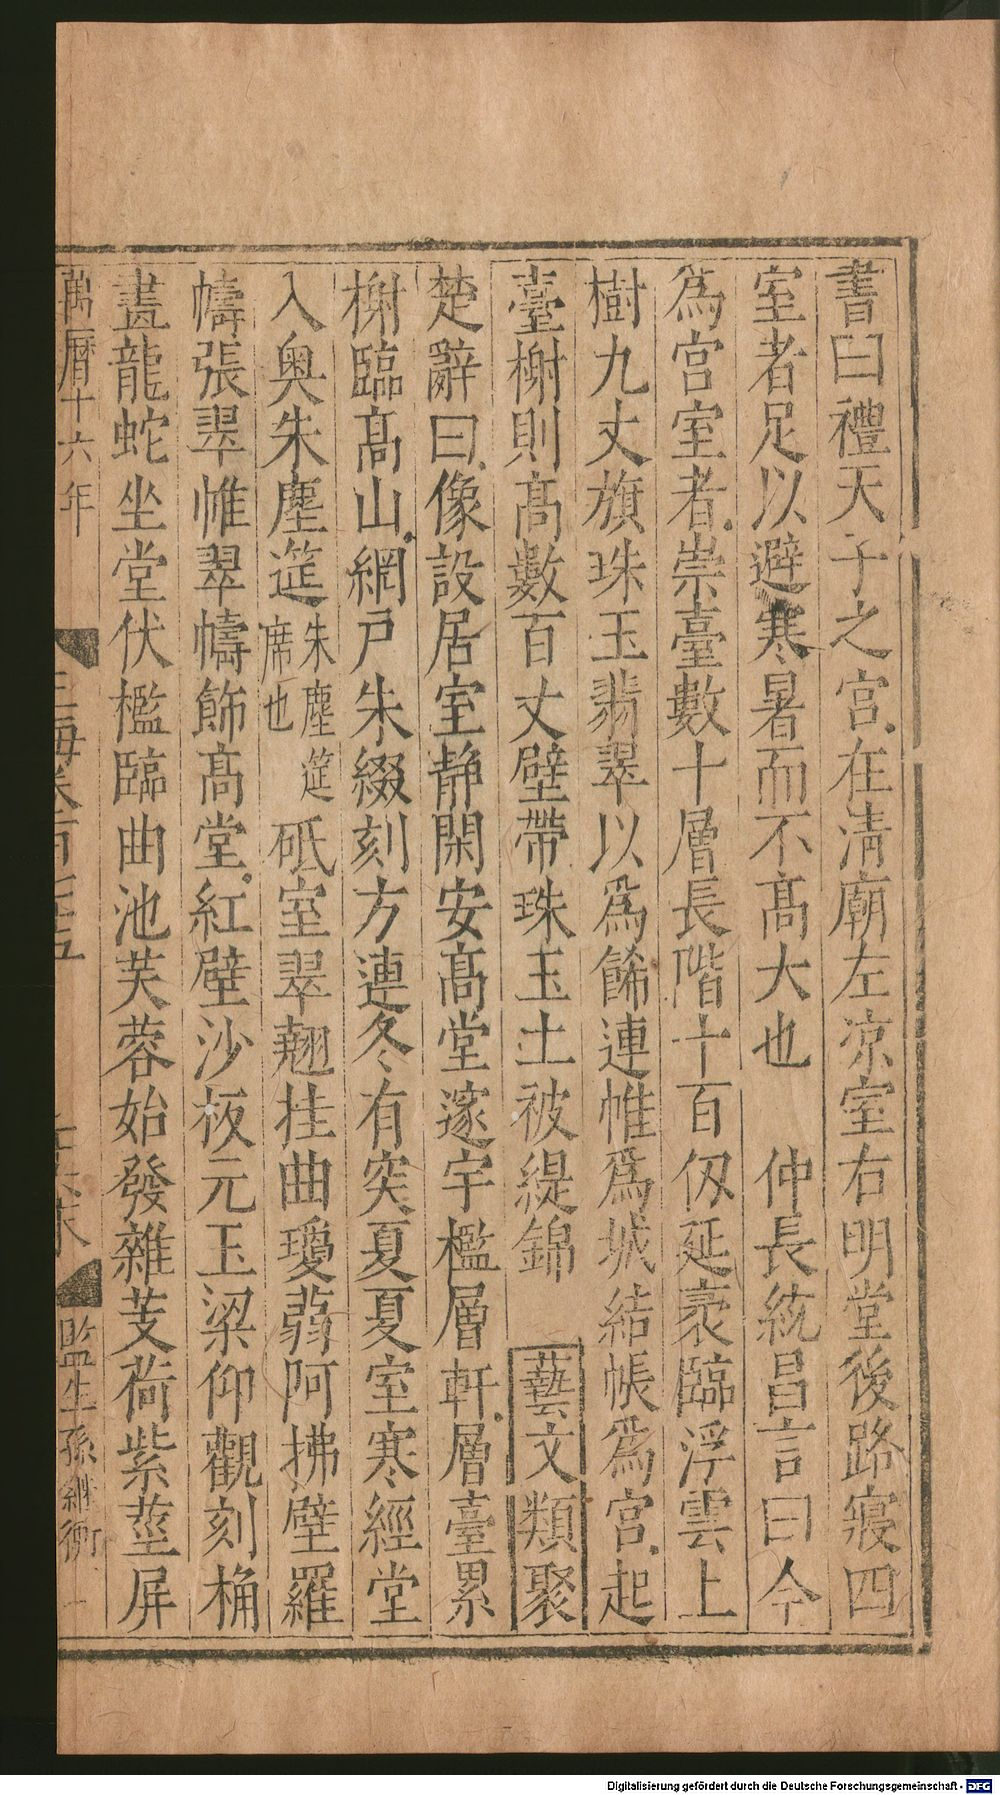 書曰禮天子之宮在淸廟左凉室右明堂後路寢四
室者足以避寒暑而不髙大也　仲長統昌言曰今
爲宮室者崇臺數十層長階十百仭延袤臨浮雲上
樹九丈旗珠玉翡翠以爲餙連帷爲城結帳爲宮起
臺榭則髙數百丈壁帶珠玉土被緹錦　藝文類聚
楚辭曰像設居室静閑安髙堂邃宇檻層軒層臺累
榭臨髙山網戸朱綴刻方連冬有突夏夏室寒經堂
入奥朱塵筵朱塵筵席也砥室翠翹挂曲瓊蒻阿拂壁羅
幬張翠帷翠幬飾髙堂紅壁沙板元玉梁仰觀刻桷
畫龍蛇坐堂伏檻臨曲池芙蓉始發雜芰荷紫莖屏
萬曆十六年　海卷百　監生孫繼衡
Digitalisierung gefördert durch die Deutsche Forschungsgemeinschaft - DFG